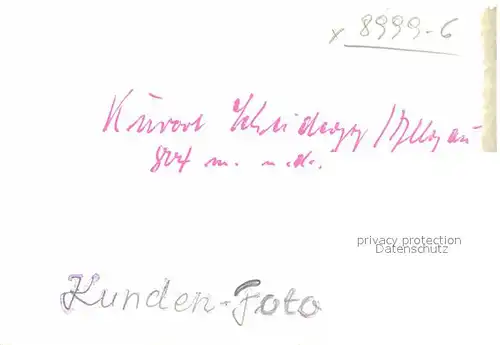 x 8999-6
Kurort Scheidegg/Allgäu
804 m. ü.d.
privacy protection
Datenschutz
Kunden-Foto